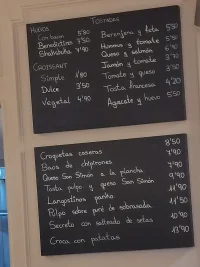 HUEVOS
Con bacon 5'90
Benedictino 8'50
Shakshuka 7'90
CROISSANT
Simple 1'80
Dulce 3'50
Vegetal 4'90
TOSTADAS
Berenjena y feta 5'50
Hummus y tomate 5'50
Queso y salmón 6'90
Jamón y tomate 3'70
Tomate y queso
Tosta francesa 4'20
Aguacate y huevo 5'50
Croquetas caseras 8'50
Baos de chipirones 7'90
Queso San Simón a la plancha 7'90
Tosta pulpo y queso San Simón 9'90
Langostinos panko 11'90
Pulpo sobre puré de sobrasada 11'50
Secreto con salteado de setas 10'90
Coca con patatas 13'90